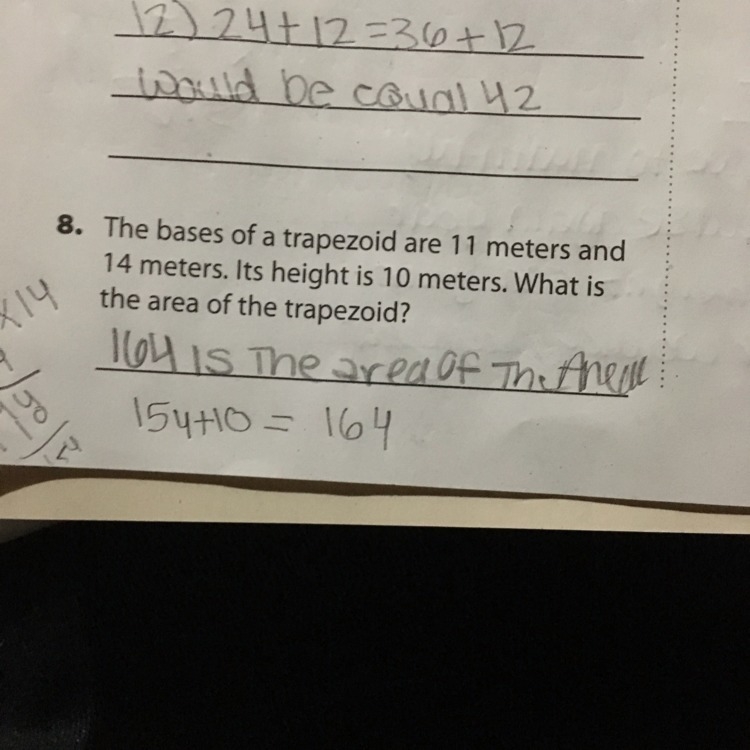 12) 24+12=36+12
would be equal 42
8. The bases of a trapezoid are 11 meters and
14 meters. Its height is 10 meters. What is
the area of the trapezoid?
×14
164 is The area OF The
154+10 = 164